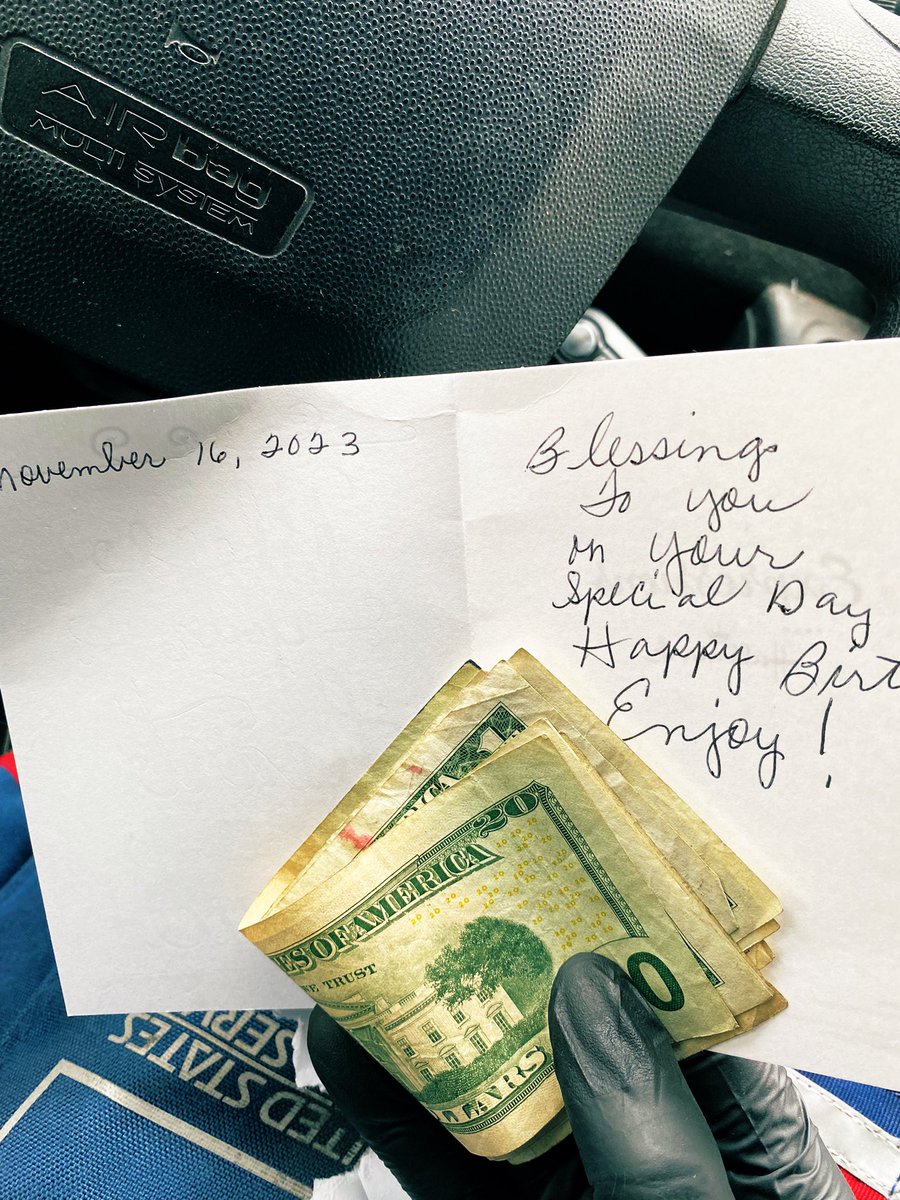 AIRbag
MULTI SYSTEM
November 16, 2023
Blessings
To you
on Your
Special Day
Happy Birt
Enjoy!
20
ES OF AMERICA
WE TRUST
LLARS
UNITED STATES
SER